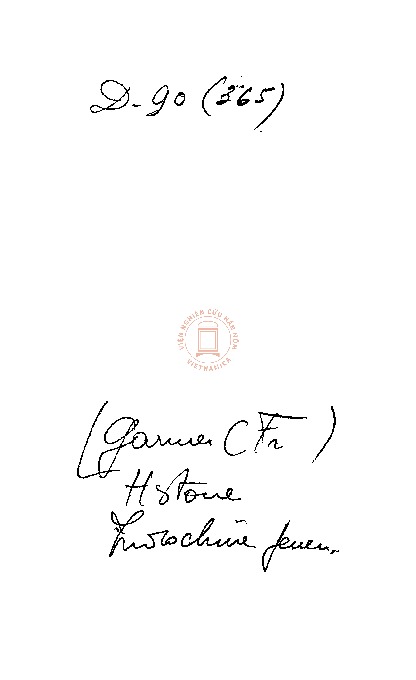 D-90 (365)
VIỆN NGHIÊN CỨU HÁN NÔM
VIETNAMICA
(Garnier (Fr)
Histoire
Indochine